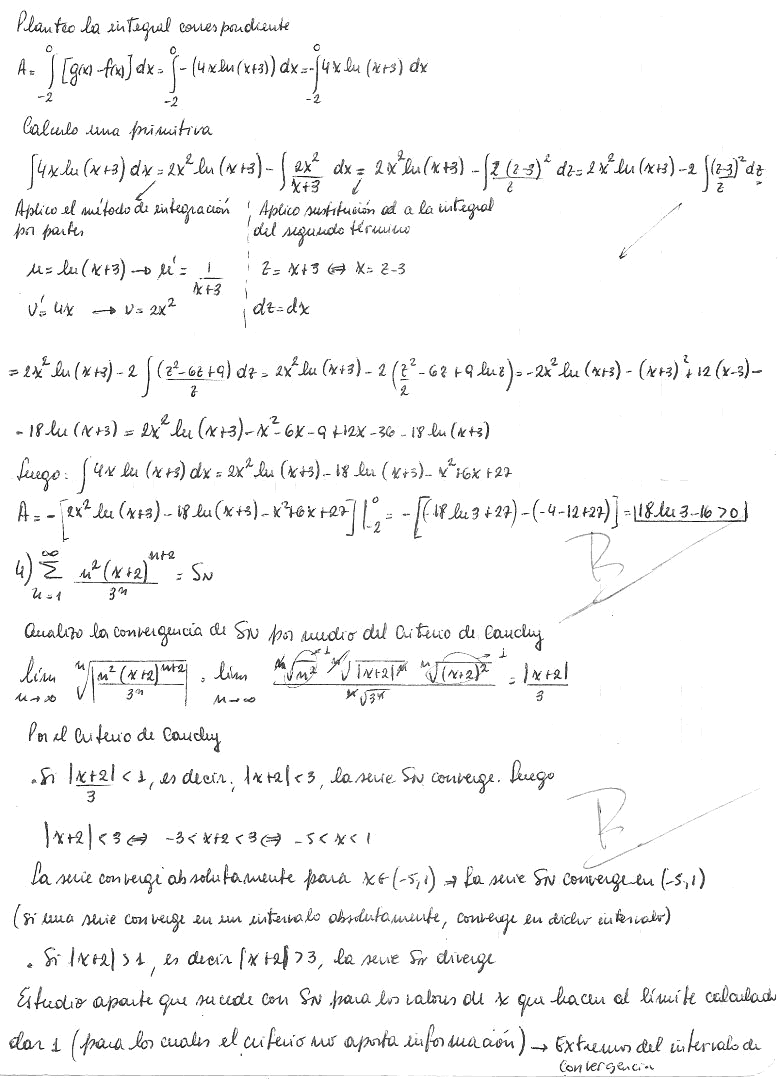 Planteo la integral correspondiente
A = ∫_{-2}^{0} [g(x) - f(x)] dx = ∫_{-2}^{0} -(4x ln(x+3)) dx = -∫_{-2}^{0} 4x ln(x+3) dx
Calculo una primitiva
∫4x ln(x+3) dx = 2x² ln(x+3) - ∫ 2x²/(x+3) dx = 2x² ln(x+3) - ∫ 2(z-3)²/z dz = 2x² ln(x+3) - 2 ∫ (z-3)²/z dz
Aplico el método de integración | Aplico sustitución ad a la integral
por partes | del segundo término
u = ln(x+3) → u' = 1/(x+3) | z = x+3 ⇔ x = z-3
v' = 4x → v = 2x² | dz = dx
= 2x² ln(x+3) - 2 ∫ (z²-6z+9)/z dz = 2x² ln(x+3) - 2 (z²/2 - 6z + 9 ln z) = -2x² ln(x+3) - (x+3)² + 12(x-3) -
- 18 ln(x+3) = 2x² ln(x+3) - x² - 6x - 9 + 12x - 36 - 18 ln(x+3)
Luego: ∫ 4x ln(x+3) dx = 2x² ln(x+3) - 18 ln(x+3) - x² + 6x + 27
A = -[2x² ln(x+3) - 18 ln(x+3) - x² + 6x + 27] |_{-2}^{0} = -[(-18 ln 3 + 27) - (-4 - 12 + 27)] = 18 ln 3 - 16 > 0
4) ∑_{n=1}^{∞} n²(x+2)^{n+2}/3^n = S_N
B
Analizo la convergencia de S_N por medio del Criterio de Cauchy
lím_{n→∞} ⁿ√|n²(x+2)^{n+2}/3^n| = lím_{n→∞} ⁿ√n² ⁿ√|x+2|^n ⁿ√(x+2)² / ⁿ√3^n = |x+2|/3
Por el Criterio de Cauchy
. Si |x+2|/3 < 1, es decir, |x+2| < 3, la serie S_N converge. Luego
|x+2| < 3 ⇔ -3 < x+2 < 3 ⇔ -5 < x < 1
B
La serie converge absolutamente para x ∈ (-5,1) → La serie S_N converge en (-5,1)
(Si una serie converge en un intervalo absolutamente, converge en dicho intervalo)
. Si |x+2| > 1, es decir |x+2| > 3, la serie S_N diverge
Estudio aparte que sucede con S_N para los valores de x que hacen al límite calculado
dar 1 (para los cuales el criterio no aporta información) → Extremos del intervalo de
convergencia